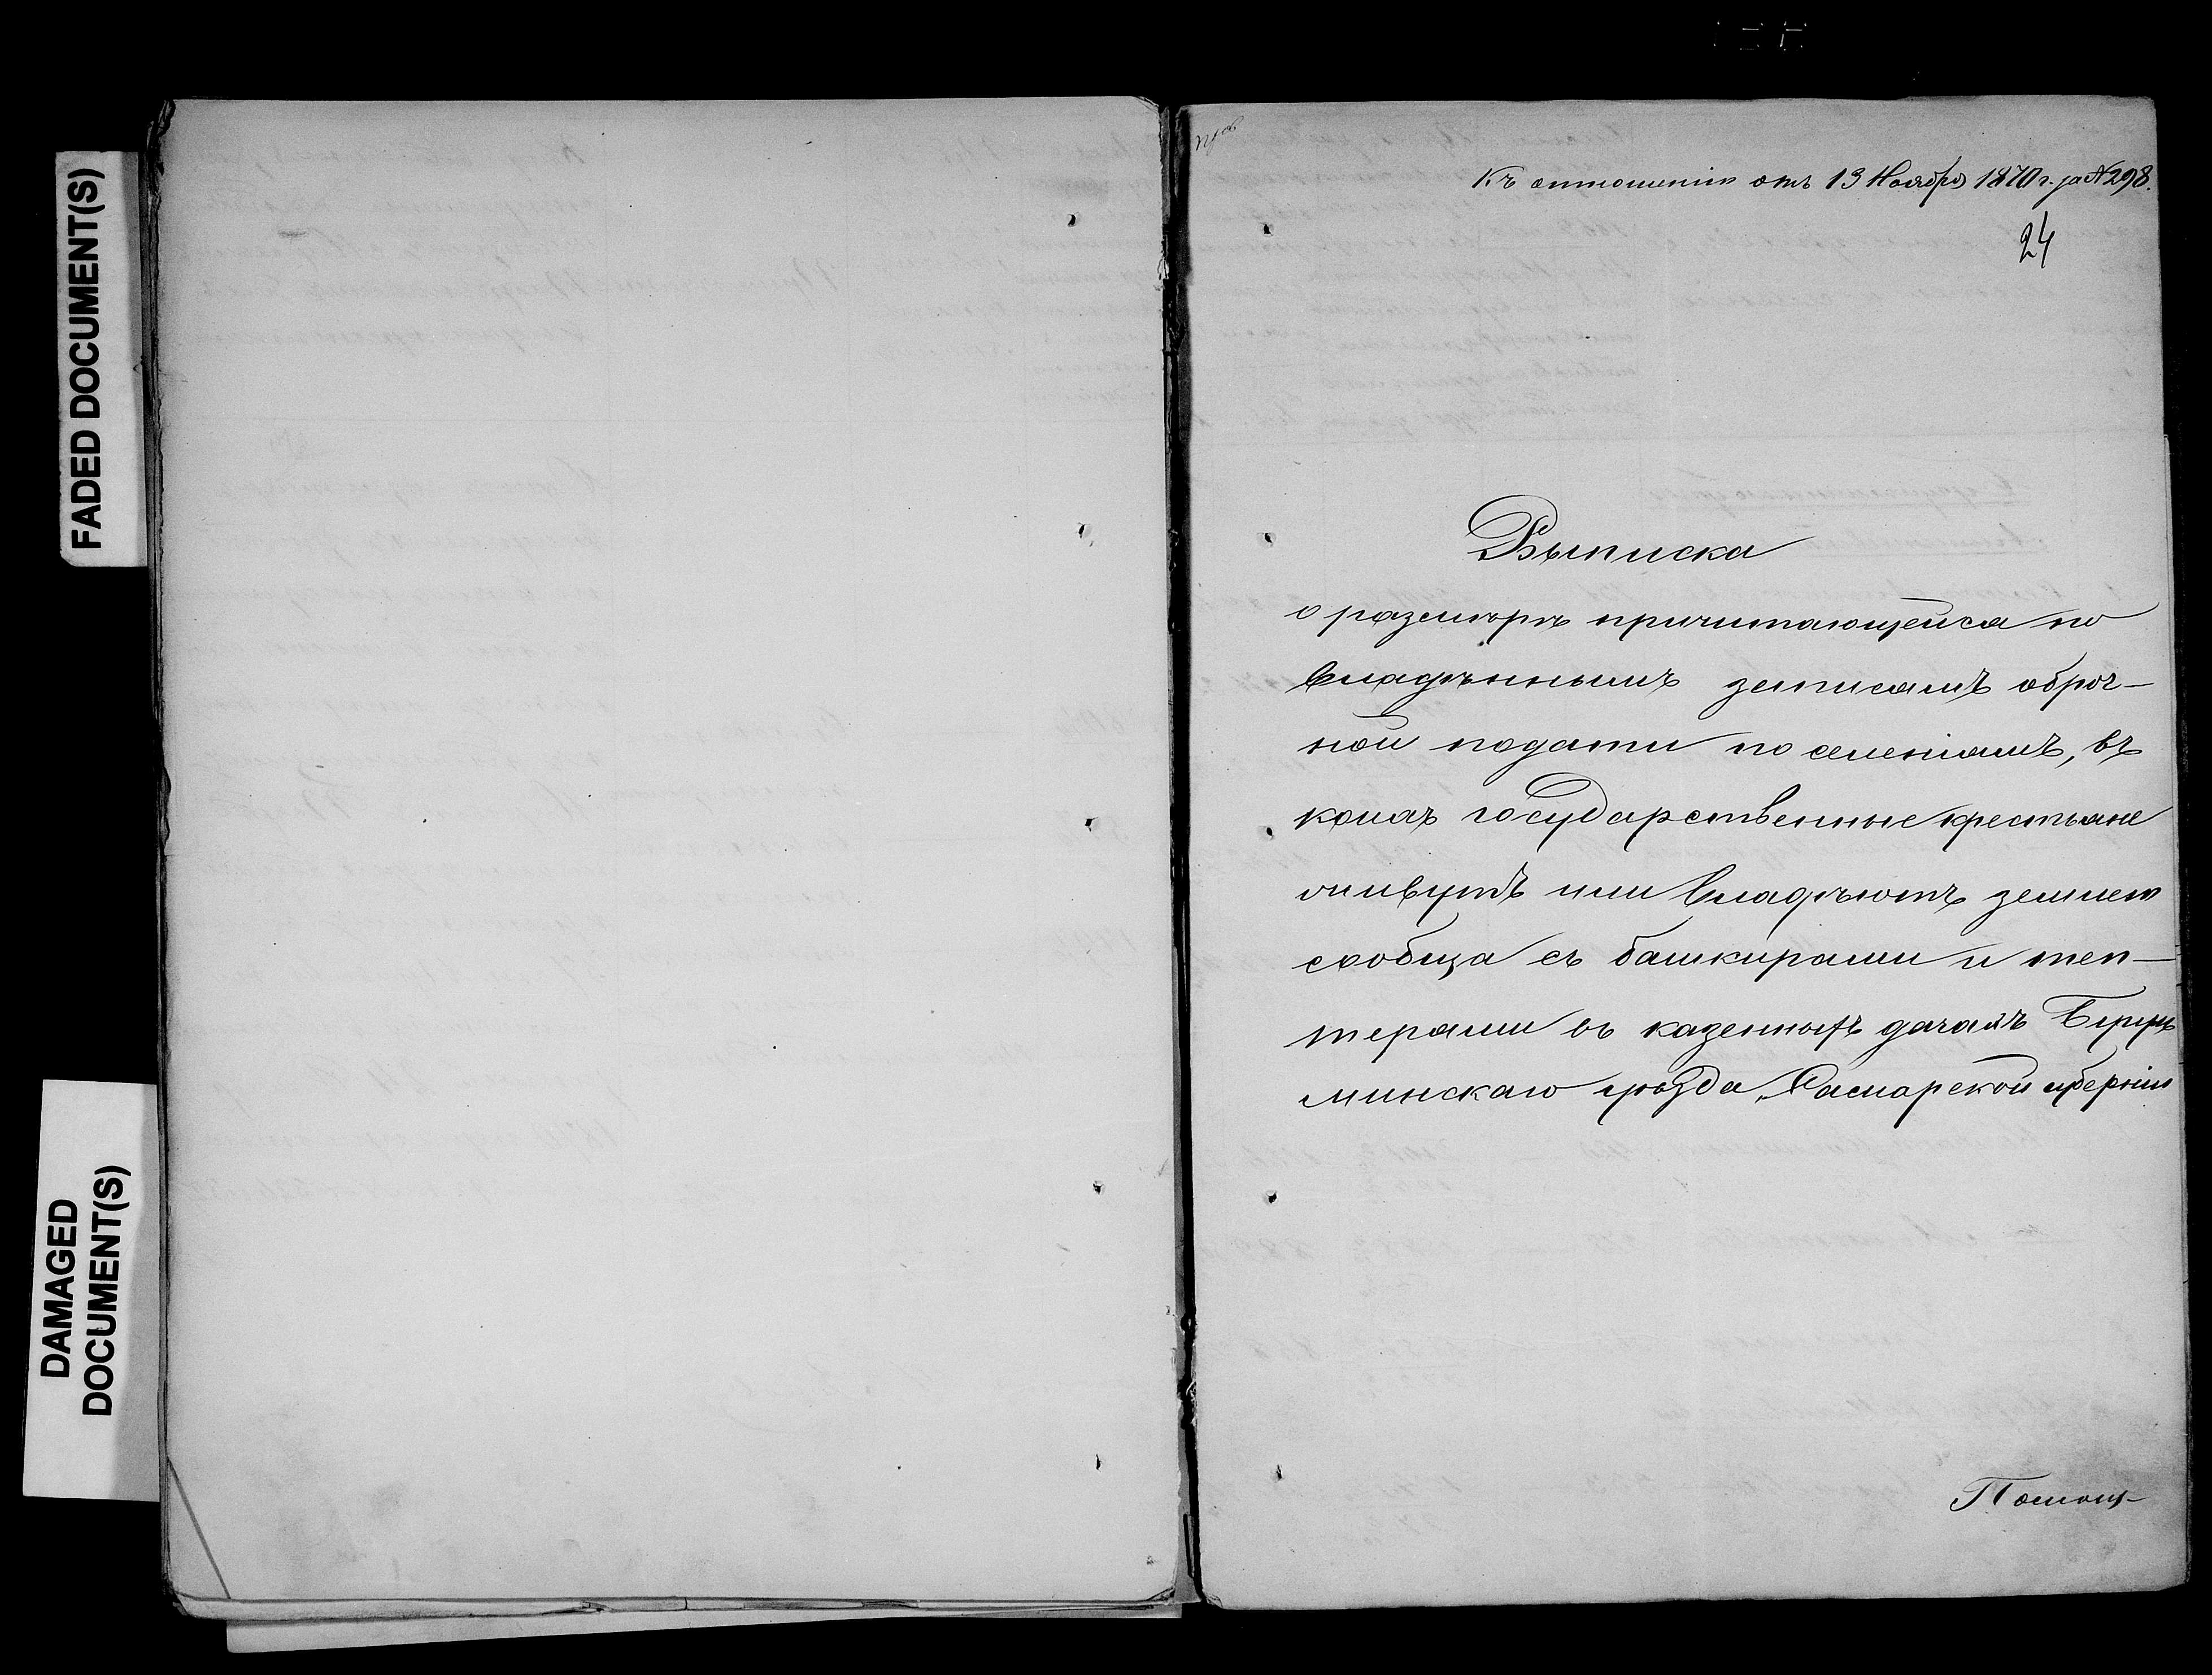 FADED DOCUMENT(S)
DAMAGED
DOCUMENT(S)
Къ отношенію отъ 13 Ноября 1870 г. за № 298.
24
Выписка
о размѣрѣ причитающейся по
владѣннымъ записямъ оброч-
ной подати по селеніямъ, въ
коихъ государственные крестьяне
живутъ или владѣютъ землею
сообща съ башкирами и теп-
терями въ казенныхъ дачахъ Бугуль
минскаго уѣзда, Самарской губерніи
Помощ-